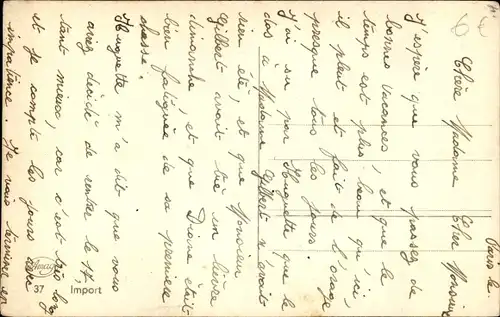 Paris le
Chère Madame Cher Monsieur
J'espère que vous passez de
bonnes Vacances et que le
temps est plus beau qu'ici,
il pleut et fait de l'orage
presque tous les jours
J'ai su par Huguette que le
dos à Madame Gilbert n'avait
rien été, et que Monsieur
Gilbert avait tué un lièvre
dimanche, et que Diane était
bien fatiguée de sa première
chasse.
Huguette m'a dit que vous
aviez décidé de rentrer le 17,
tant mieux, car c'est très long
et je compte les jours avec
impatience. Je vous termine en
37 Import